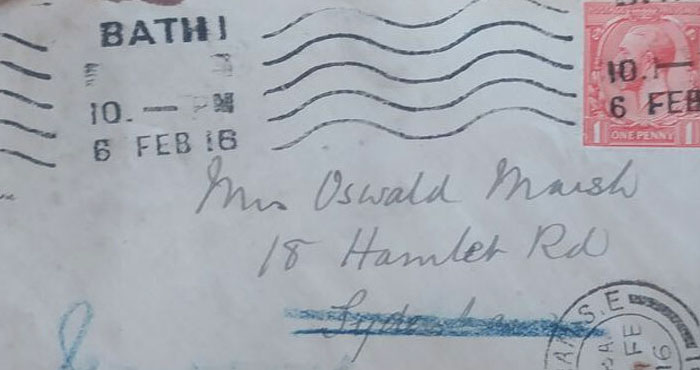 BATH 1
10. — PM
6 FEB 16
10. —
6 FEB
1 ONE PENNY 1
Mrs Oswald Marsh
18 Hamlet Rd
Sydenham
S.E
FE
16